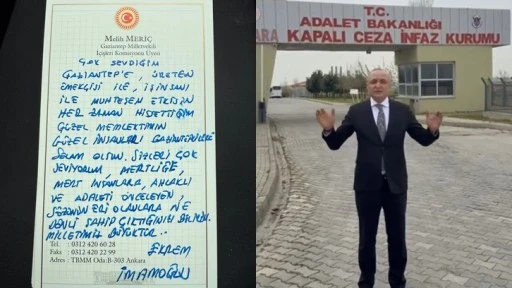 Melih MERİÇ
Gaziantep Milletvekili
İçişleri Komisyonu Üyesi
ÇOK SEVDİĞİM
GAZİANTEP'E, ÜRETEN
EMEKÇİSİ İLE, İŞ İNSANI
İLE MUHTEŞEM ETKİSİN
HER ZAMAN HİSSETTİĞİM
GÜZEL MEMLEKETİMİN
GÜZEL İNSANLARI GAZİANTEPLİLERE
SELAM OLSUN. SİZLERİ ÇOK
SEVİYORUM, MERTLİĞE,
MERT İNSANLARA, AHLAKLI
VE ADALETİ ÖNCELEYEN,
SÖZÜNÜN ERİ OLANLARA NE
DENLİ SAHİP ÇIKTIĞINIZI BİLİRİM.
MİLLETİMİZ BÜYÜKTÜR..
EKREM
İMAMOĞLU
Tel : 0312 420 60 28
Faks : 0312 420 22 99
Adres : TBMM Oda:B-303 Ankara
T.C.
ADALET BAKANLIĞI
KARA KAPALI CEZA İNFAZ KURUMU